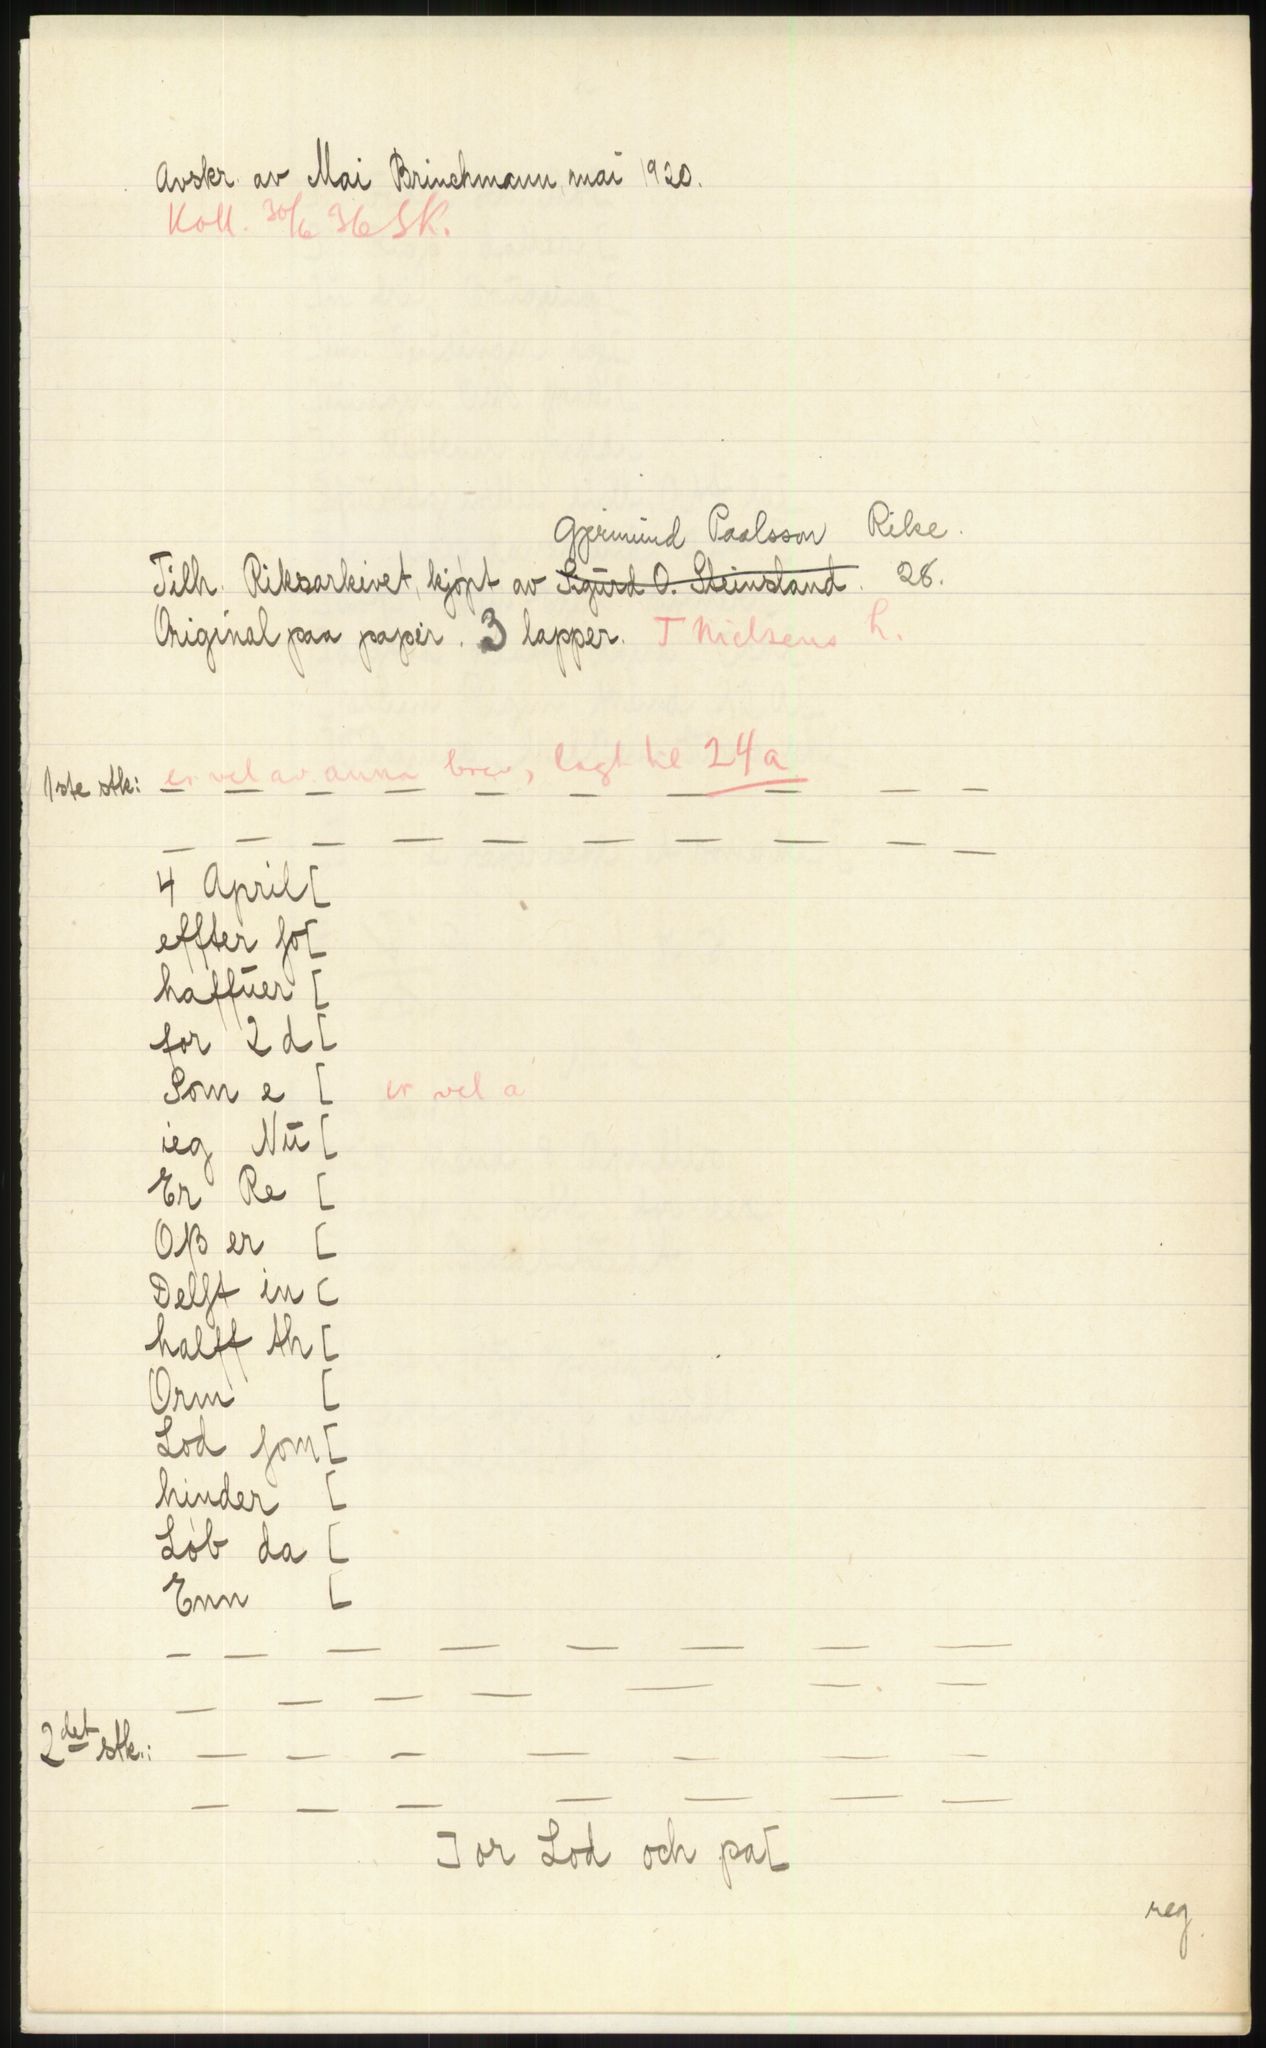 Avskr. av Mai Brinchmann, mai 1920.
Koll. 30/6 36 SK.
Gjermund Paalsson Rike.
Tilh. Riksarkivet, kjøpt av Sigurd O. Steinsland. 28.
Original paa papir. 3 lapper. T Nielsens h.
1ste stk: er vel av anna brev, lagt til 24 a
— — — — — — — — — —
— — — — — — — — — —
4 April [
effter so[
haffuer [
for 2 d [
Som e [ er vel a
ieg Nü [
Er Re [
Oß er [
Delft in [
halff th [
Orm [
Lod som [
hinder [
Løb da [
Enn [
— — — — — — — —
— — — — — — —
2det stk.: — — — — — — —
— — — — — — —
] or Lod och pa[
reg.